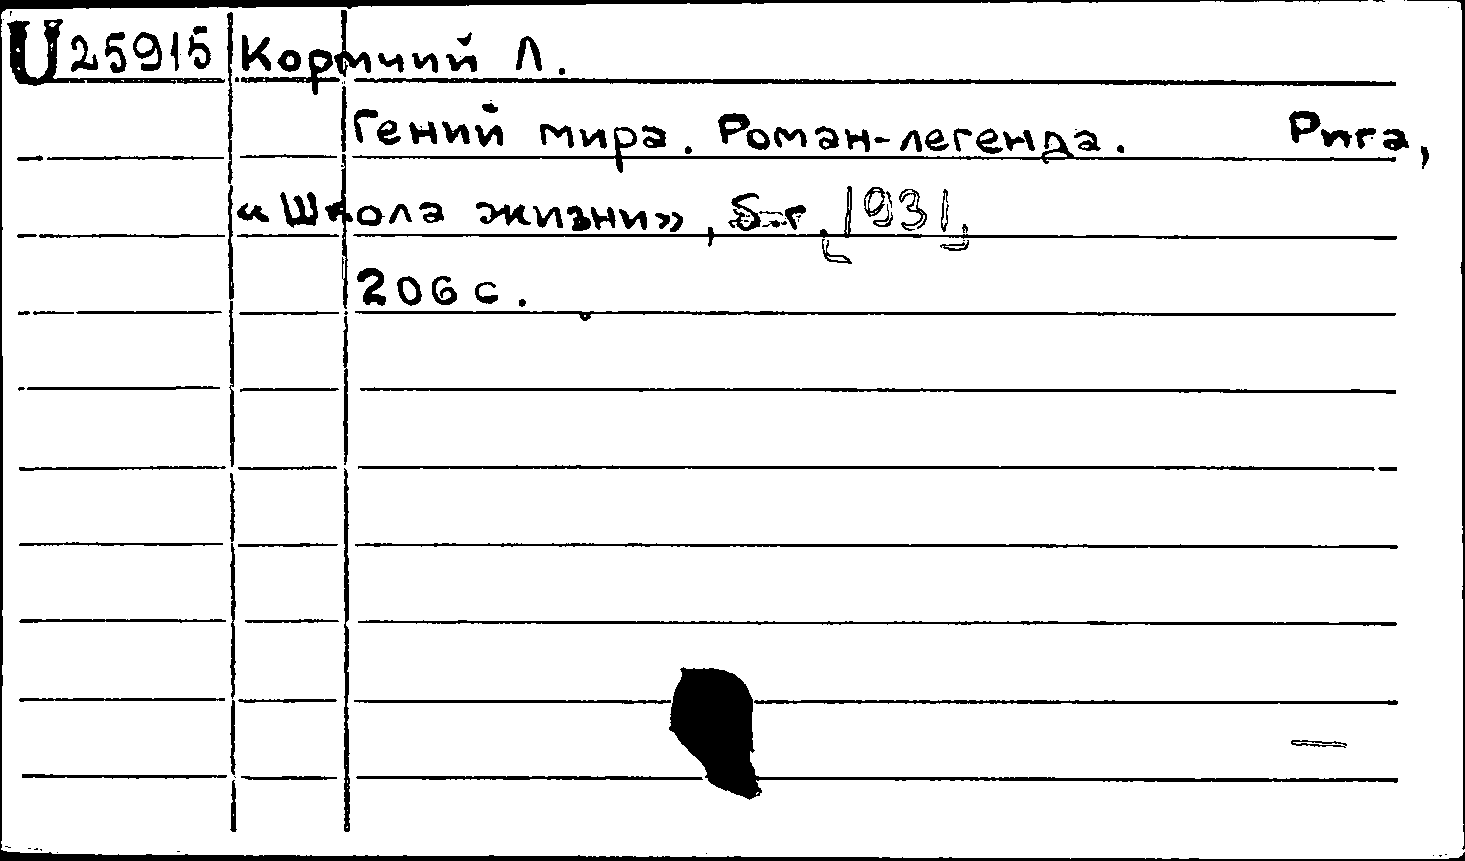 U25915 Кормчий Л.
Гений мира. Роман-легенда. Рига,
«Школа жизни», б.г. [1931]
206 с.